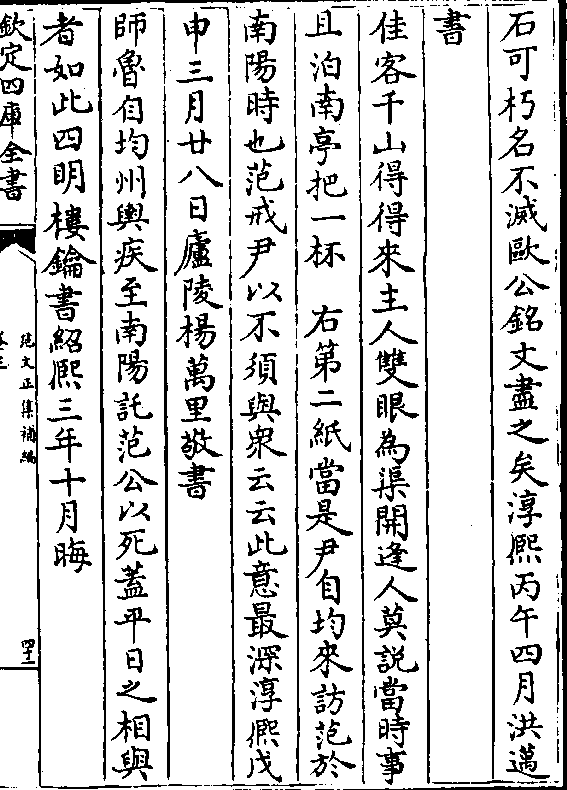 石可朽名不滅歐公銘文盡之矣淳熙丙午四月洪邁
書
佳客千山得得來主人雙眼為渠開逢人莫說當時事
且泊南亭把一杯　右第二紙當是尹自均來訪范於
南陽時也范戒尹以不須與衆云云此意最深淳熙戊
申三月廿八日廬陵楊萬里敬書
師魯自均州輿疾至南陽託范公以死蓋平日之相與
者如此四明樓鑰書紹熙三年十月晦
欽定四庫全書
范文正集補編
卷三
四十二